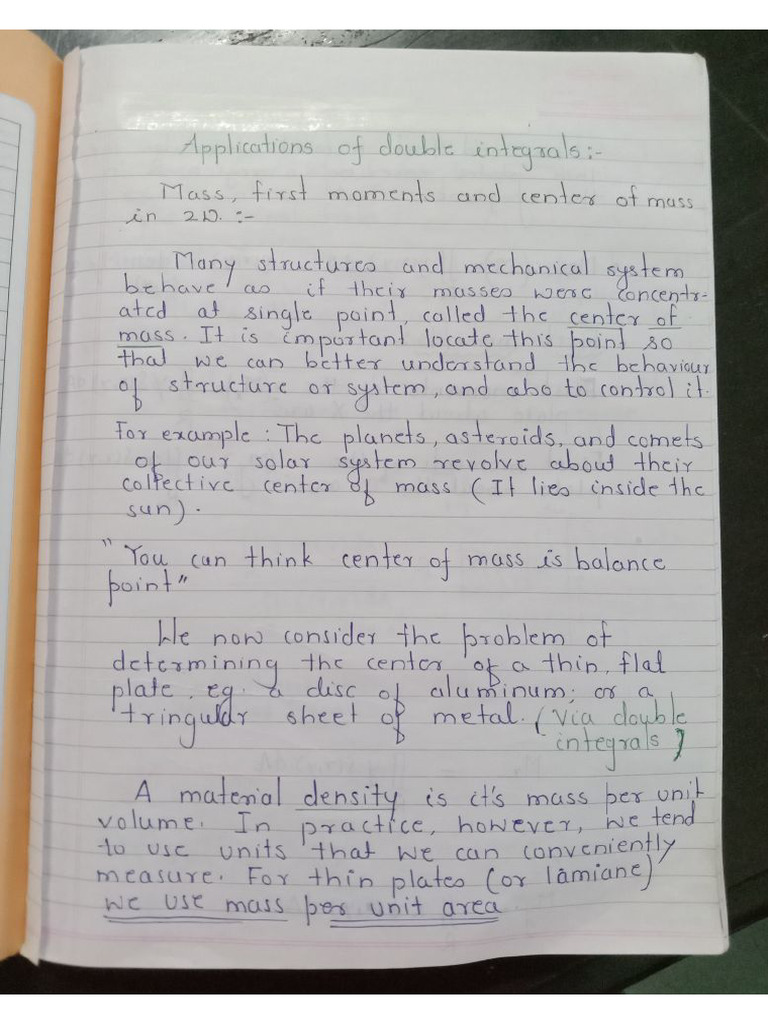 Applications of double integrals:-
Mass, first moments and center of mass
in 2D. :-
Many structures and mechanical system
behave as if their masses were concentr-
ated at single point, called the center of
mass. It is important locate this point so
that we can better understand the behaviour
of structure or system, and also to control it.
For example : The planets, asteroids, and comets
of our solar system revolve about their
collective center of mass (It lies inside the
sun).
"You can think center of mass is balance
point"
We now consider the problem of
determining the center of a thin, flat
plate, eg. a disc of aluminum; or a
tringular sheet of metal. (via double
integrals)
A material density is it's mass per unit
volume. In practice, however, we tend
to use units that we can conveniently
measure. For thin plates (or lamiane)
we use mass per unit area